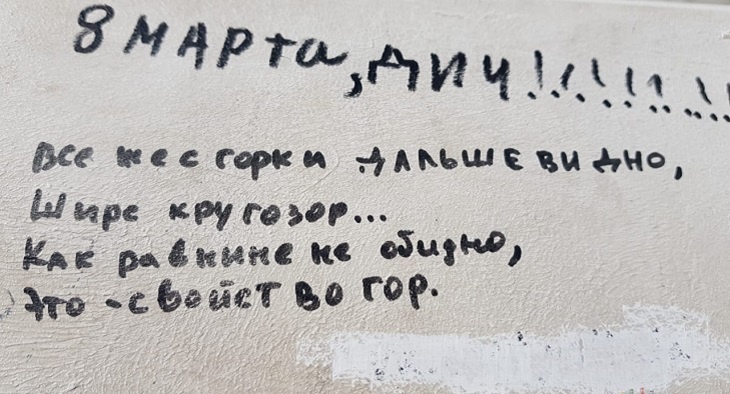 8 МАРТА, ДИЧ!!!!!!!!
Все же с горки дальше видно,
Шире кругозор...
Как равнине не обидно,
Это - свойство гор.